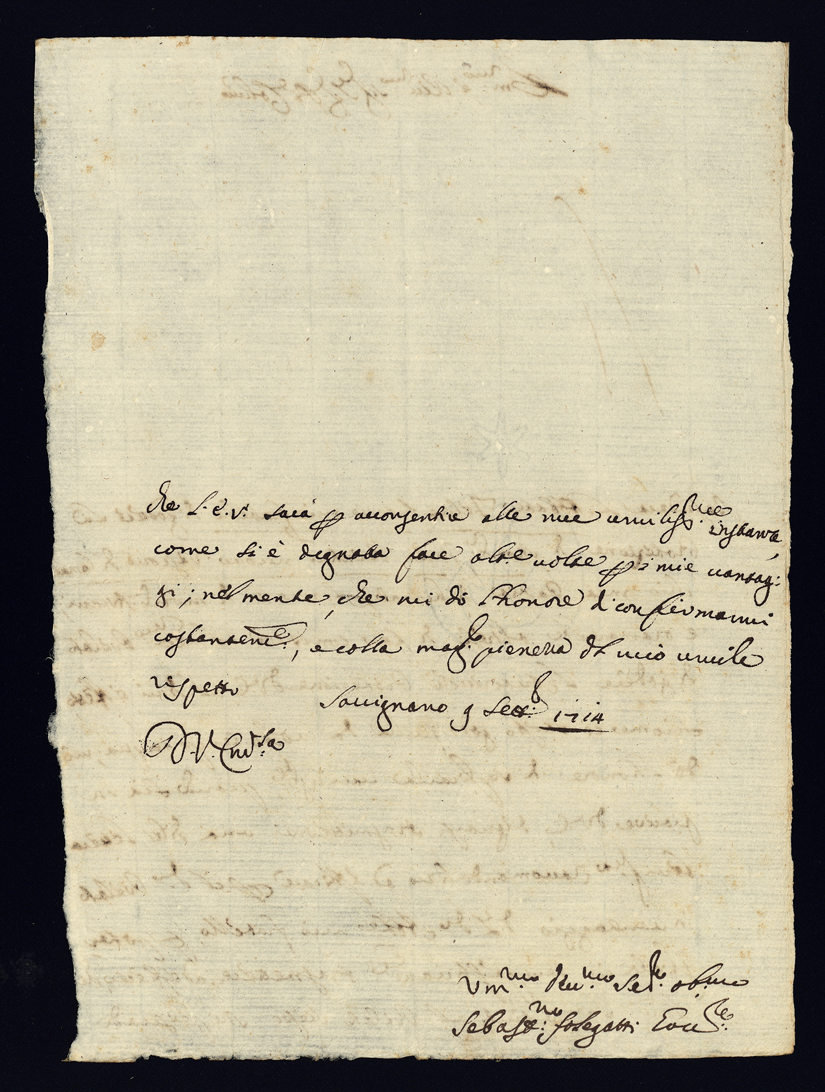 che S. E. V. sarà per acconsentire alle mie umiliss:me instanze,
come si è degnata fare altre volte per i mie vantag:
gi; nel mentre, che mi do l'honore di confirmarmi
costantem:e, e colla mag:r pienezza del mio umile
rispetto
Savignano 9 Sett:e 1714
D. V. Ecc:za
Um:mo Dev:mo Ser:re ob:mo
Sebast:no Folegatti